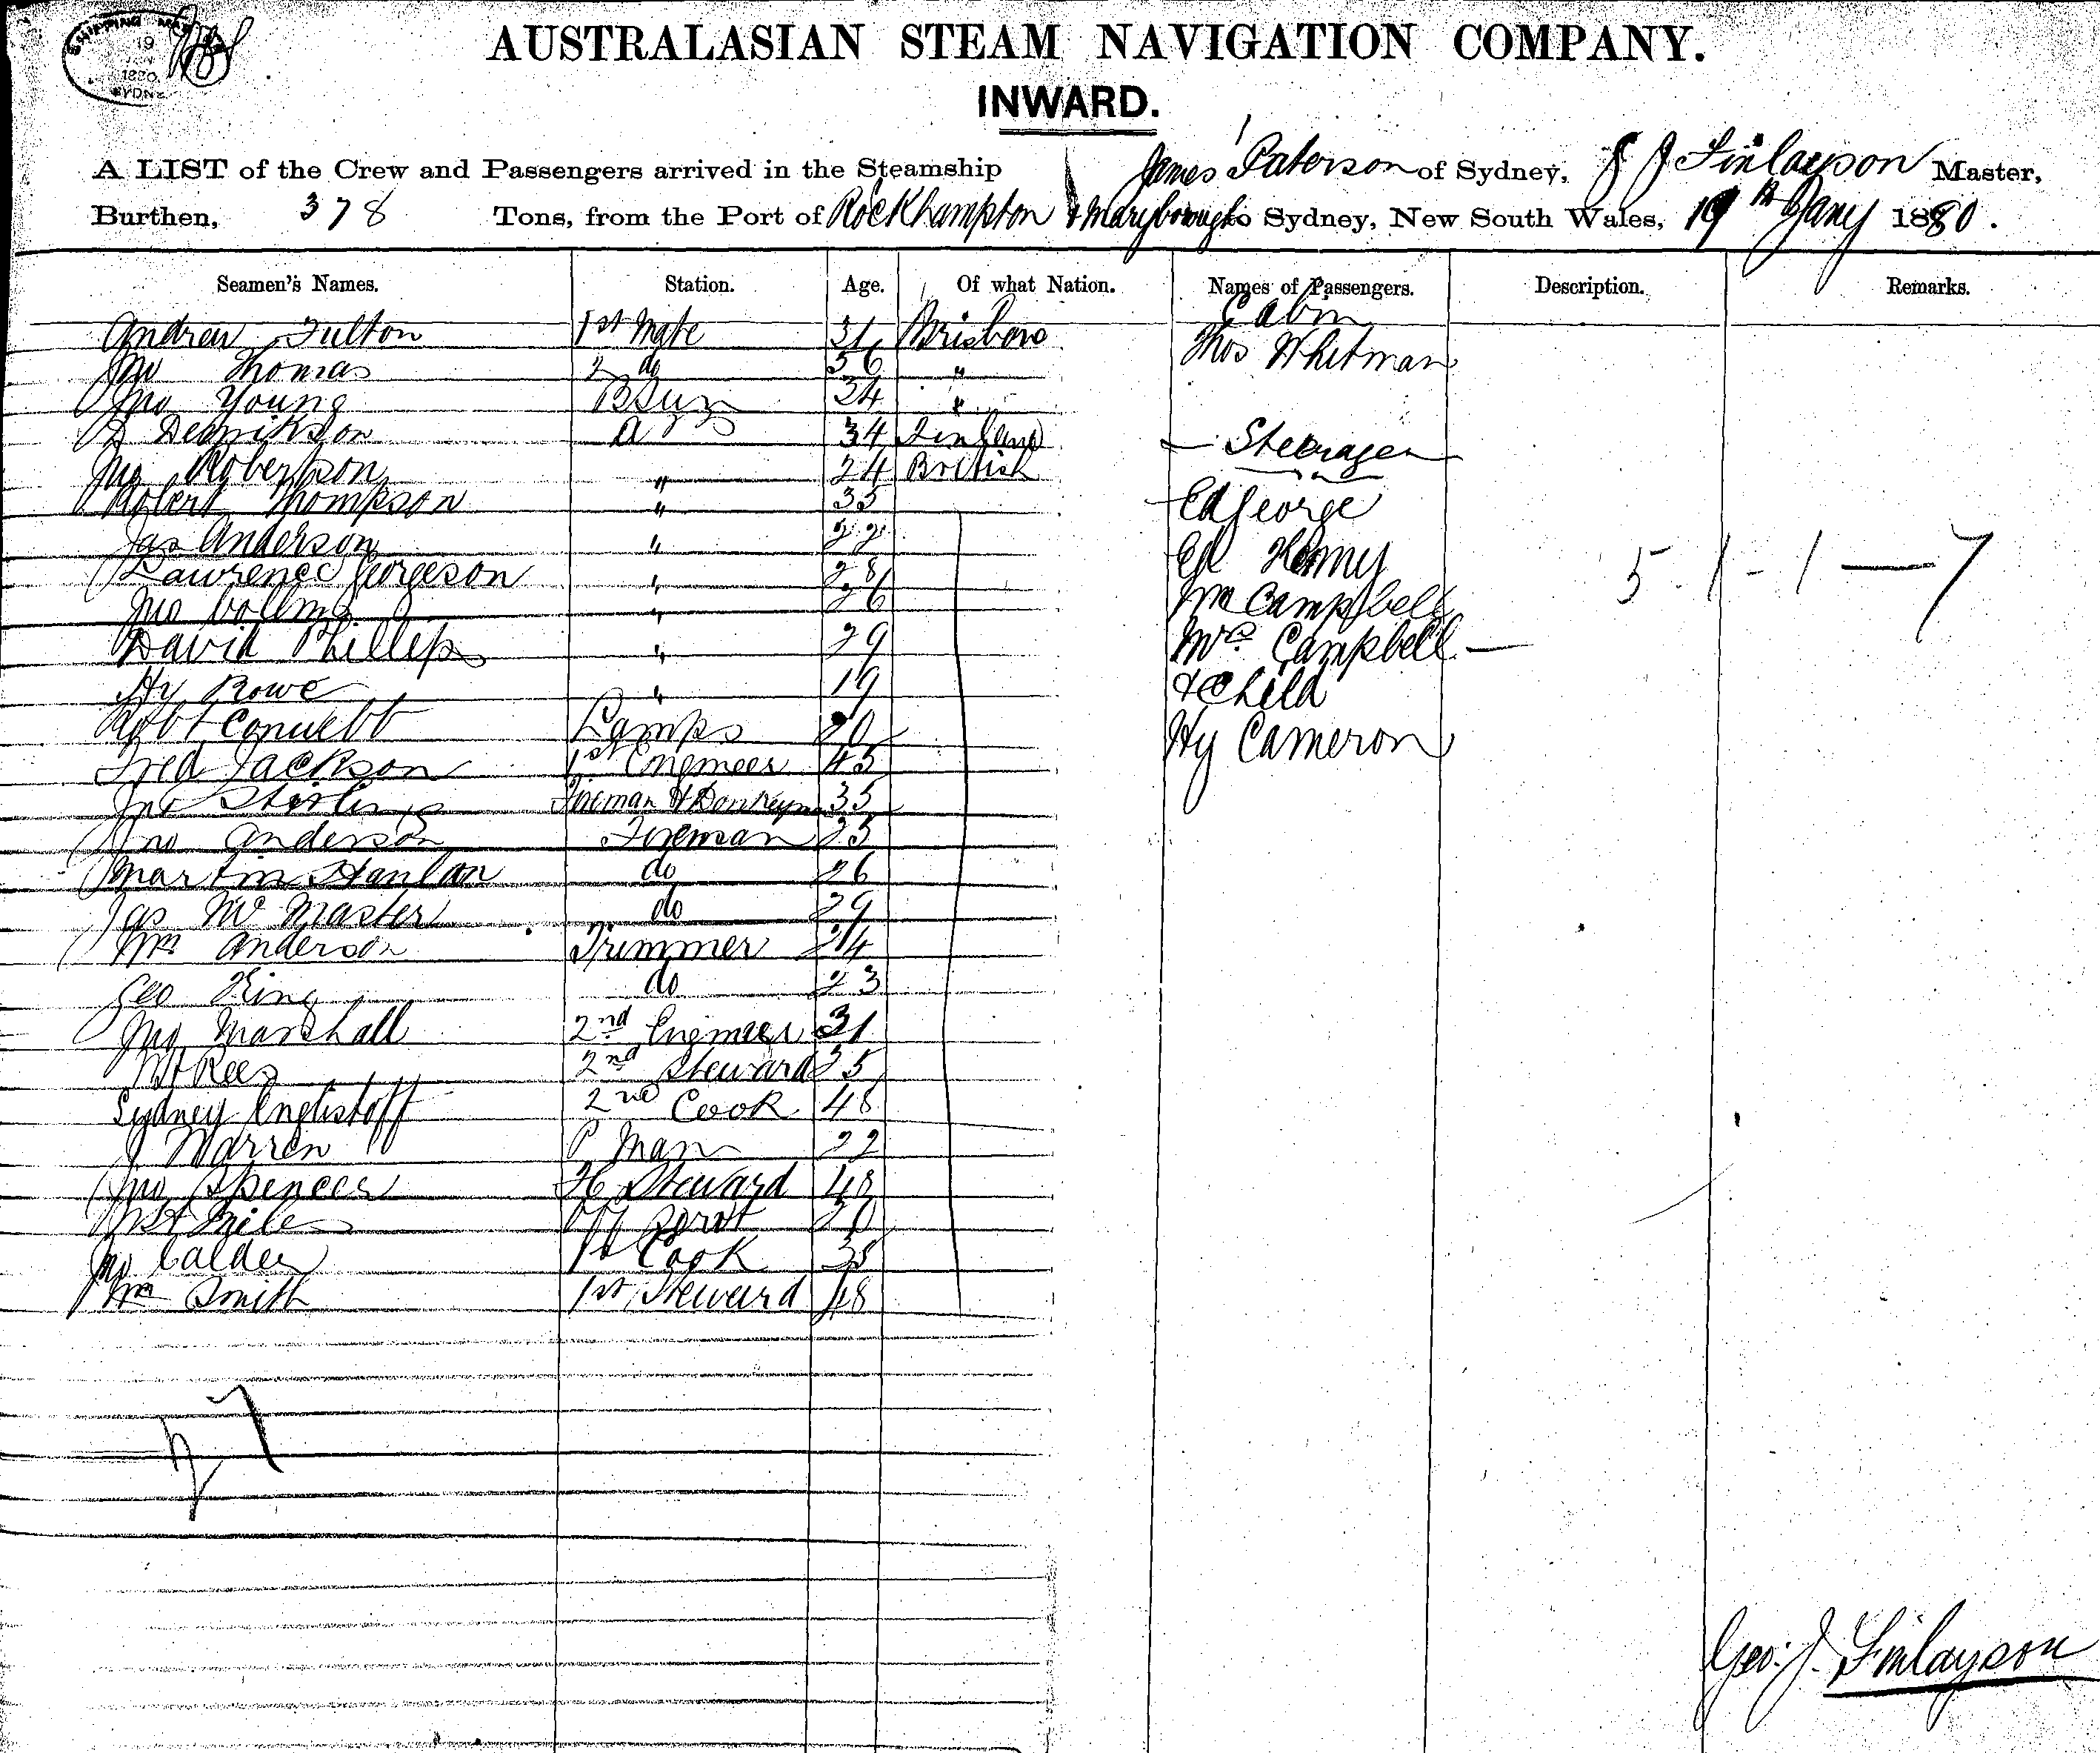 SHIPPING MA
19
1880
SYDNE
AUSTRALASIAN STEAM NAVIGATION COMPANY.
INWARD.
A LIST of the Crew and Passengers arrived in the Steamship James Paterson of Sydney, J Finlayson Master,
Burthen, 378 Tons, from the Port of Rockhampton & Maryborough to Sydney, New South Wales, 19th Jany 1880.
Seamen's Names. Station. Age. Of what Nation. Names of Passengers. Description. Remarks.
Cabin
Andrew Fulton 1st Mate 31 Brisbane
Thos Whitman
Jno Thomas 2 do 56 "
Jno Young 34 "
34 Finland
Steerage
Jno Robertson " 24 British
Robert Thompson " 35
Ed George
Jas Anderson " 22
Lawrence Georgeson " 28
5-1-1-7
Jno Collins " 26
Wm Campbell
David Phillips " 29
Mrs Campbell
Hy Rowe " 19
& Child
Robt Lamps 20
Hy Cameron
Fred Jackson 1st Engineer 45
Jno Stirling Fireman & Donkeyman 35
Jno Anderson Fireman 25
Martin Hanlan do 26
Jas McMaster do 29
Wm Anderson Trimmer 24
Geo King do 23
Jno Marshall 2nd Engineer 31
Rees 2nd Steward 35
Sydney 2nd Cook 48
J Warren P Man 22
Jno Spencer Steward 48
20
Jno Calder 1st Cook 38
Wm Smith 1st Steward 48
27
Geo: J. Finlayson